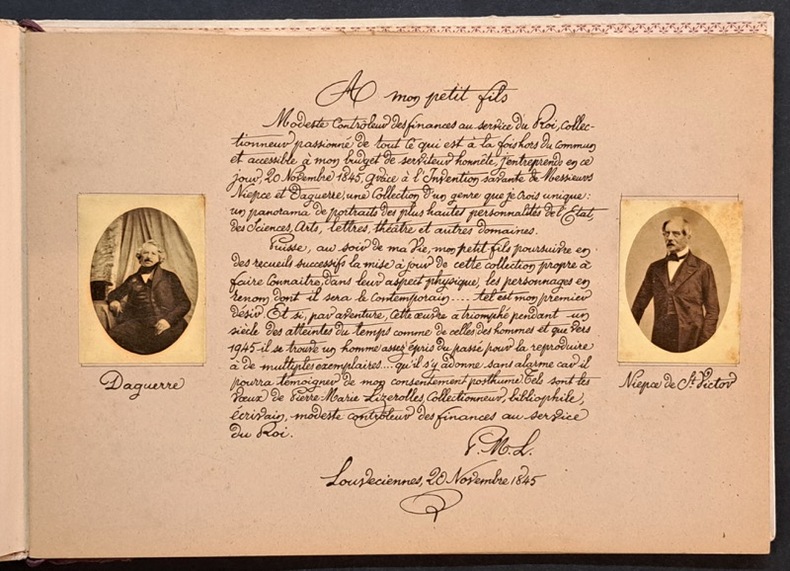 A mon petit fils
Modeste Contrôleur des finances au service du Roi, Collec-
tionneur passionné de tout ce qui est à la fois hors du commun
et accessible à mon budget de serviteur honnête, j'entreprends en ce
jour, 20 Novembre 1845, grâce à l'Invention savante de Messieurs
Niepce et Daguerre, une Collection d'un genre que je crois unique :
un panorama de portraits des plus hautes personnalités de l'État,
des Sciences, Arts, lettres, théâtre et autres domaines.
Puisse, au soir de ma Vie, mon petit fils, poursuivre en
des recueils successifs la mise à jour de cette collection propre à
faire connaitre, dans leur aspect physique, les personnages en
renom dont il sera le contemporain.... tel est mon premier
désir. Et si, par aventure, cette œuvre a triomphé pendant un
siècle des atteintes du temps comme de celles des hommes et que vers
1945 il se trouve un homme assez épris du passé pour la reproduire
à de multiples exemplaires... qu'il s'y adonne sans alarme car il
pourra témoigner de mon consentement posthume. Tels sont les
Vœux de Pierre Marie Lizerolles, Collectionneur, bibliophile,
écrivain, modeste contrôleur des finances au service
du Roi.
P. M. L.
Louveciennes, 20 Novembre 1845
Daguerre
Niepce de St Victor